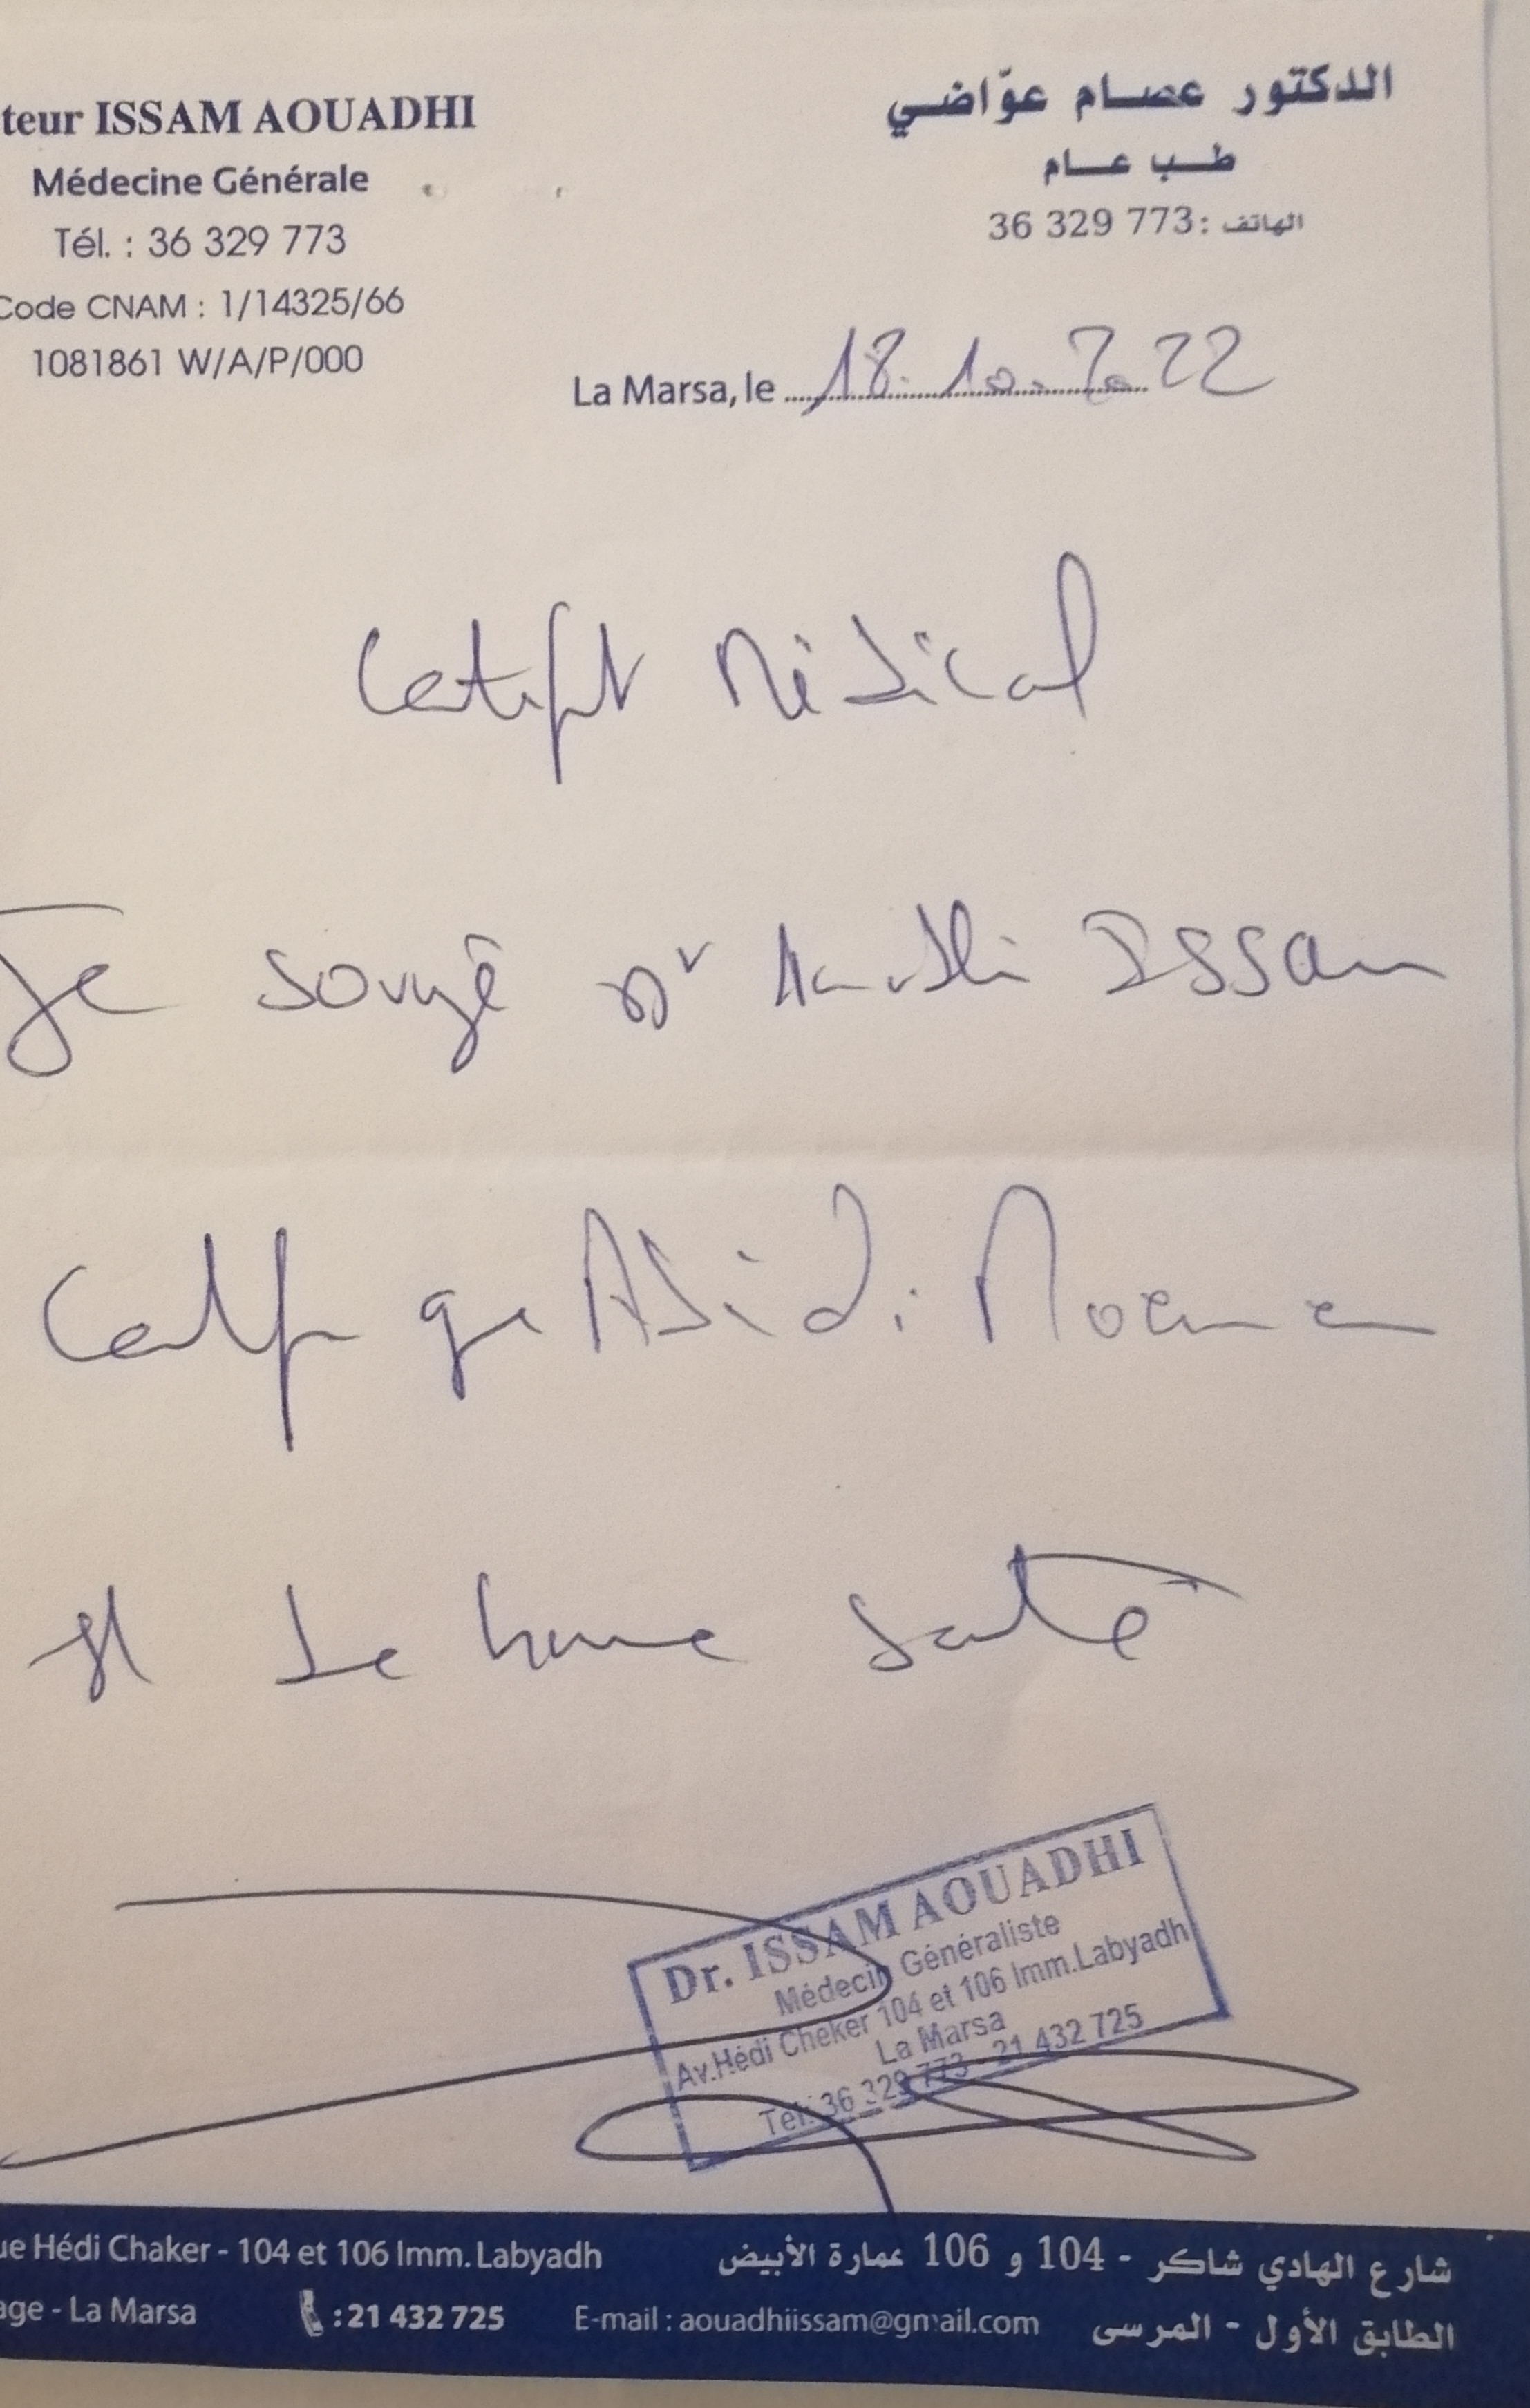 teur ISSAM AOUADHI
Médecine Générale
Tél. : 36 329 773
Code CNAM : 1/14325/66
1081861 W/A/P/000
الدكتور عصام عوّاضي
طب عام
الهاتف : 36 329 773
La Marsa, le 18. 10. 2022
Certificat Médical
Je soussigné Dr Aouadhi Issam
Certifie que Abidi Moemen
est de bonne santé
Dr. ISSAM AOUADHI
Médecin Généraliste
Av.Hédi Cheker 104 et 106 Imm.Labyadh
La Marsa
Tél: 36 329 773 - 21 432 725
ue Hédi Chaker - 104 et 106 Imm. Labyadh
age - La Marsa : 21 432 725 E-mail : aouadhiissam@gmail.com
شارع الهادي شاكر - 104 و 106 عمارة الأبيض
الطابق الأول - المرسى